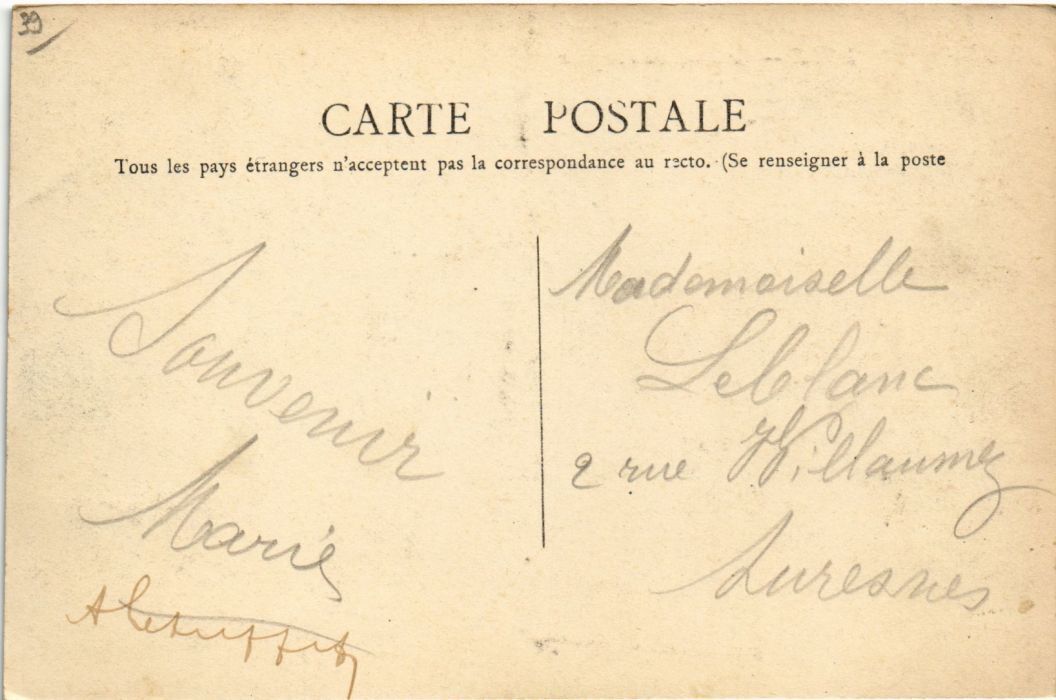 39
CARTE POSTALE
Tous les pays étrangers n'acceptent pas la correspondance au recto. (Se renseigner à la poste
Souvenir
Marie
Mademoiselle
Leblanc
2 rue Willaumez
Suresnes